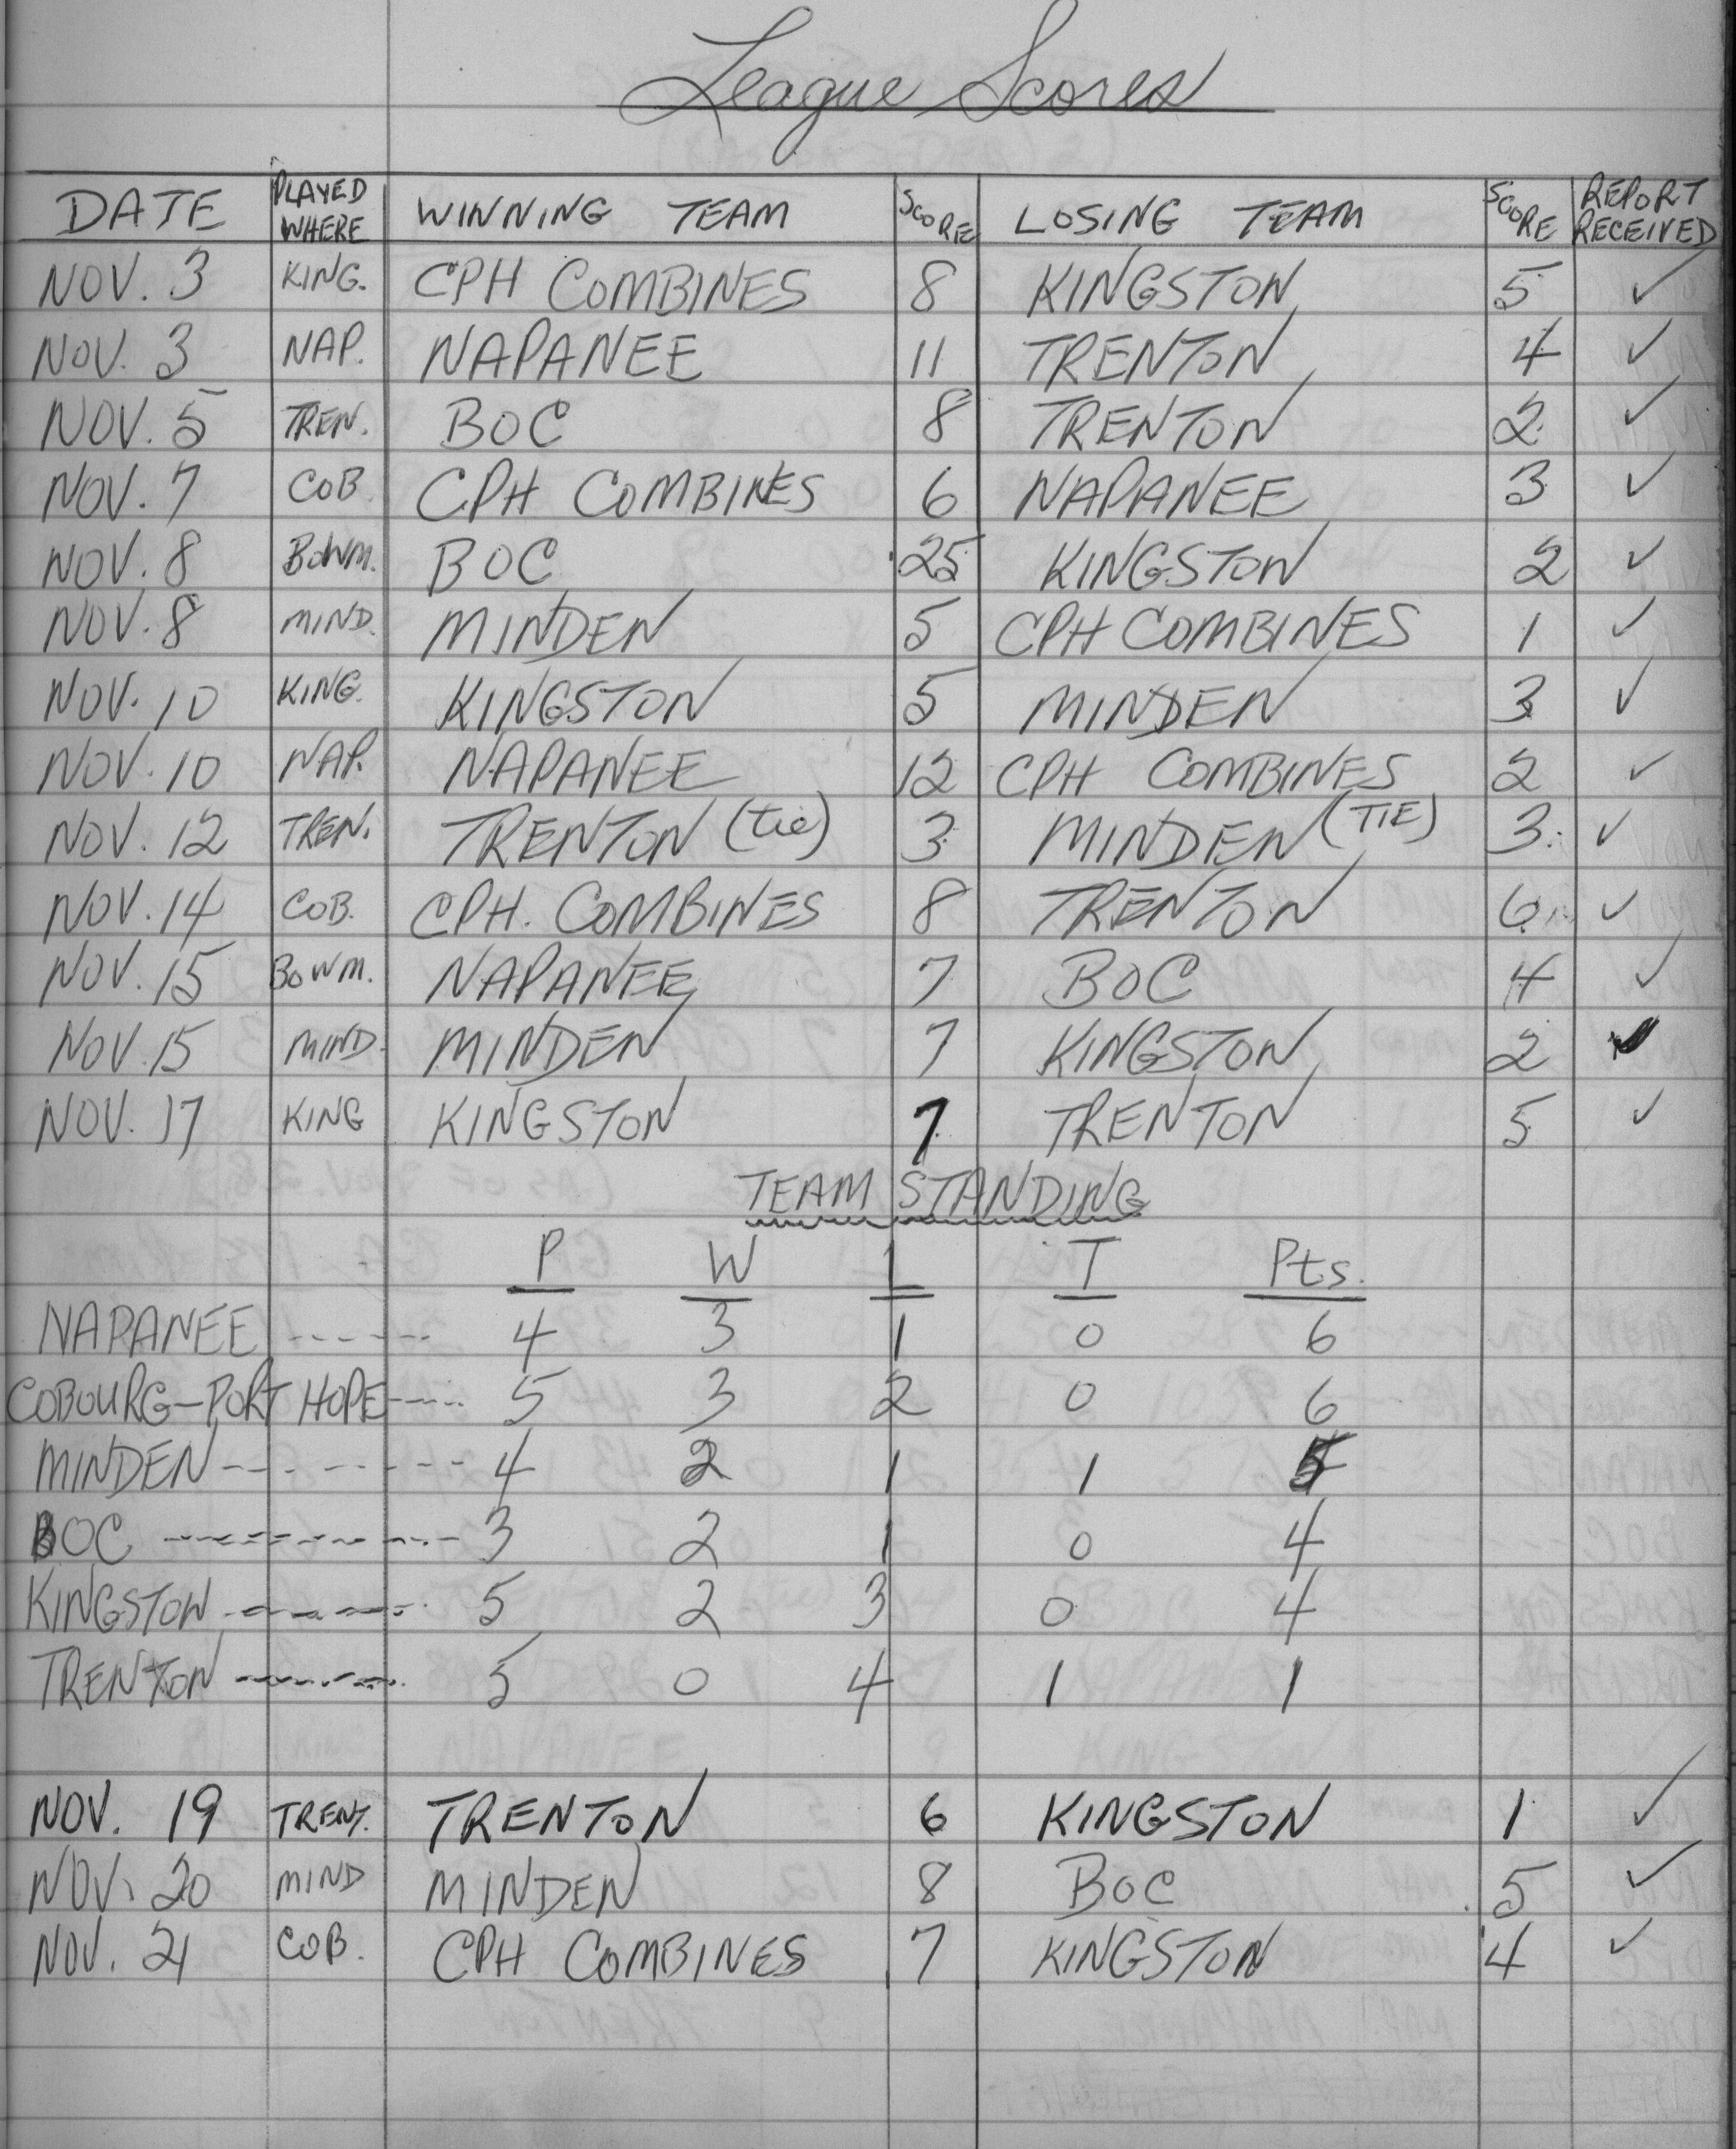 League Scores
DATE PLAYED WHERE WINNING TEAM SCORE LOSING TEAM SCORE REPORT RECEIVED
NOV. 3 KING. CPH COMBINES 8 KINGSTON 5 ✓
NOV. 3 NAP. NAPANEE 11 TRENTON 4 ✓
NOV. 5 TREN. BOC 8 TRENTON 2 ✓
NOV. 7 COB. CPH COMBINES 6 NAPANEE 3 ✓
NOV. 8 BOWM. BOC 25 KINGSTON 2 ✓
NOV. 8 MIND. MINDEN 5 CPH COMBINES 1 ✓
NOV. 10 KING. KINGSTON 5 MINDEN 3 ✓
NOV. 10 NAP. NAPANEE 12 CPH COMBINES 2 ✓
NOV. 12 TREN. TRENTON (tie) 3 MINDEN (TIE) 3 ✓
NOV. 14 COB. CPH. COMBINES 8 TRENTON 6 ✓
NOV. 15 BOWM. NAPANEE 7 BOC 4 ✓
NOV. 15 MIND. MINDEN 7 KINGSTON 2 ✓
NOV. 17 KING KINGSTON 7 TRENTON 5 ✓
TEAM STANDING
P W L T Pts.
NAPANEE ------ 4 3 1 0 6
COBOURG-PORT HOPE ---- 5 3 2 0 6
MINDEN -------- 4 2 1 1 5
BOC ---------- 3 2 1 0 4
KINGSTON ------- 5 2 3 0 4
TRENTON ------- 5 0 4 1 1
NOV. 19 TRENT. TRENTON 6 KINGSTON 1 ✓
NOV. 20 MIND MINDEN 8 BOC 5 ✓
NOV. 21 COB. CPH COMBINES 7 KINGSTON 4 ✓